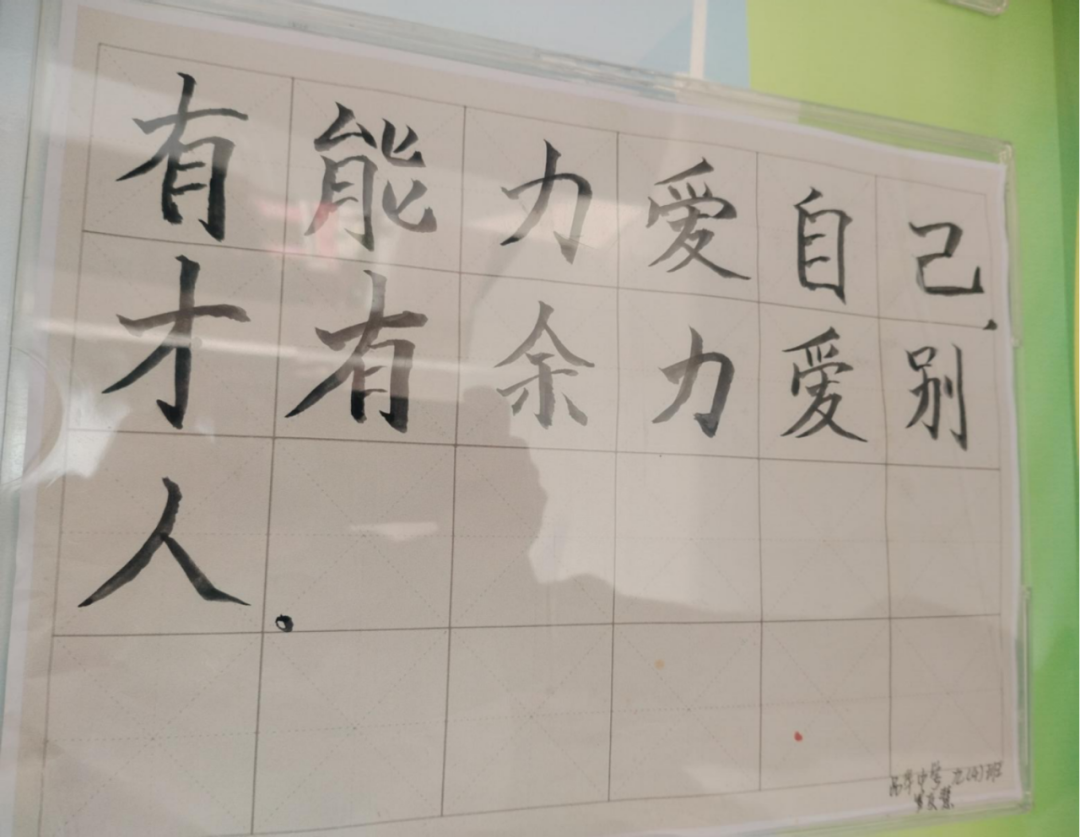 有能力爱自己,
才有余力爱别
人.
中学 九(4)班